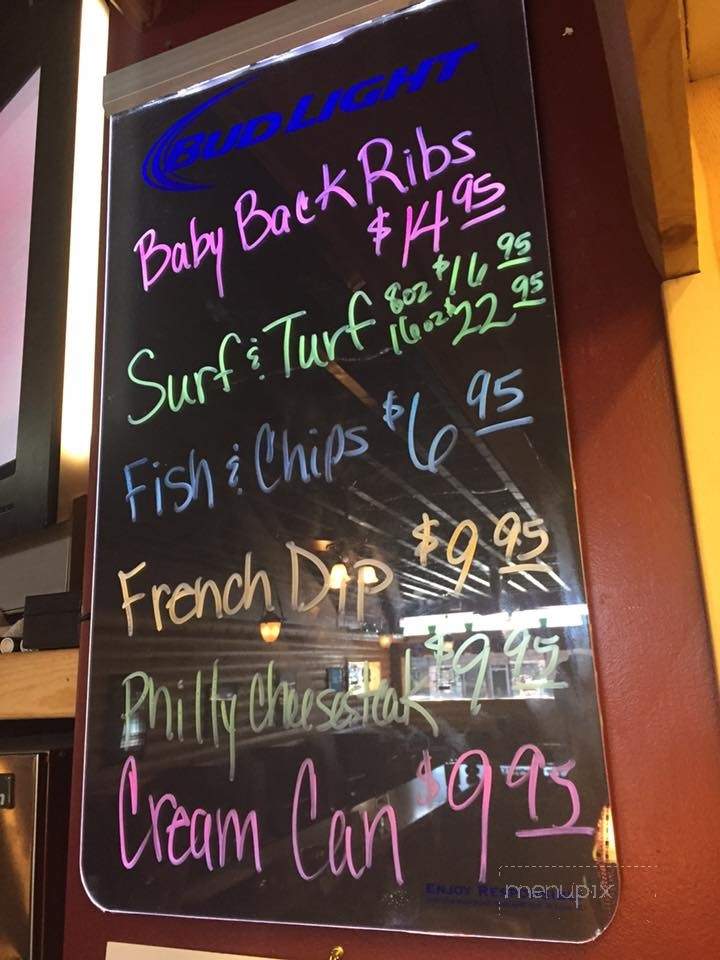 BUD LIGHT
Baby Back Ribs
$14.95
Surf & Turf 8oz $16 95
16oz $22 95
Fish & Chips $6 95
French Dip $9 95
Philly Cheesesteak $9 95
Cream Can $9 95
ENJOY
menupix